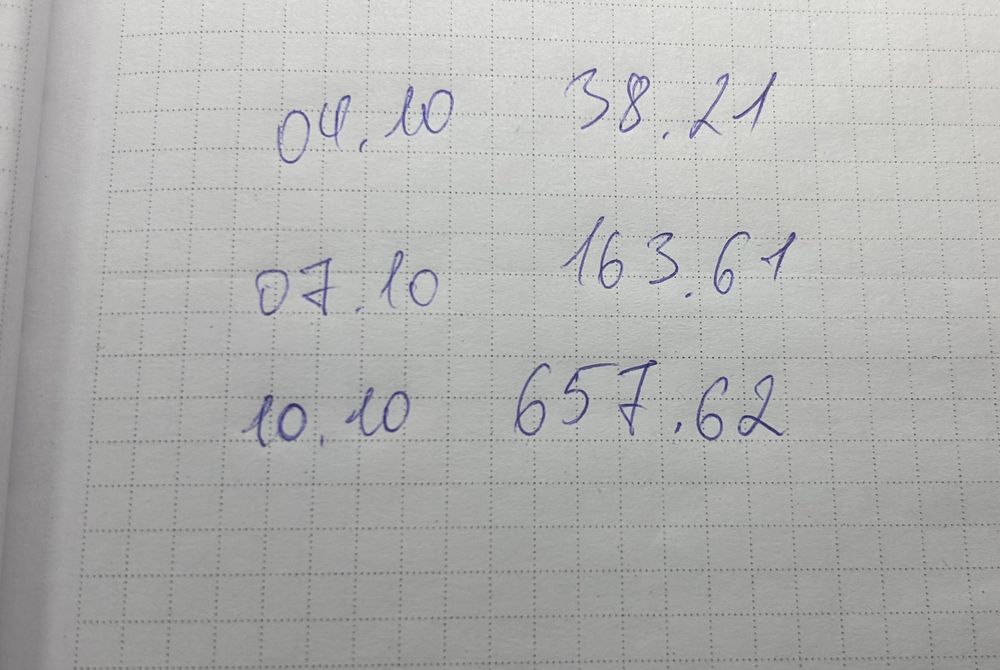 04.10 38.21
07.10 163.61
10.10 657.62